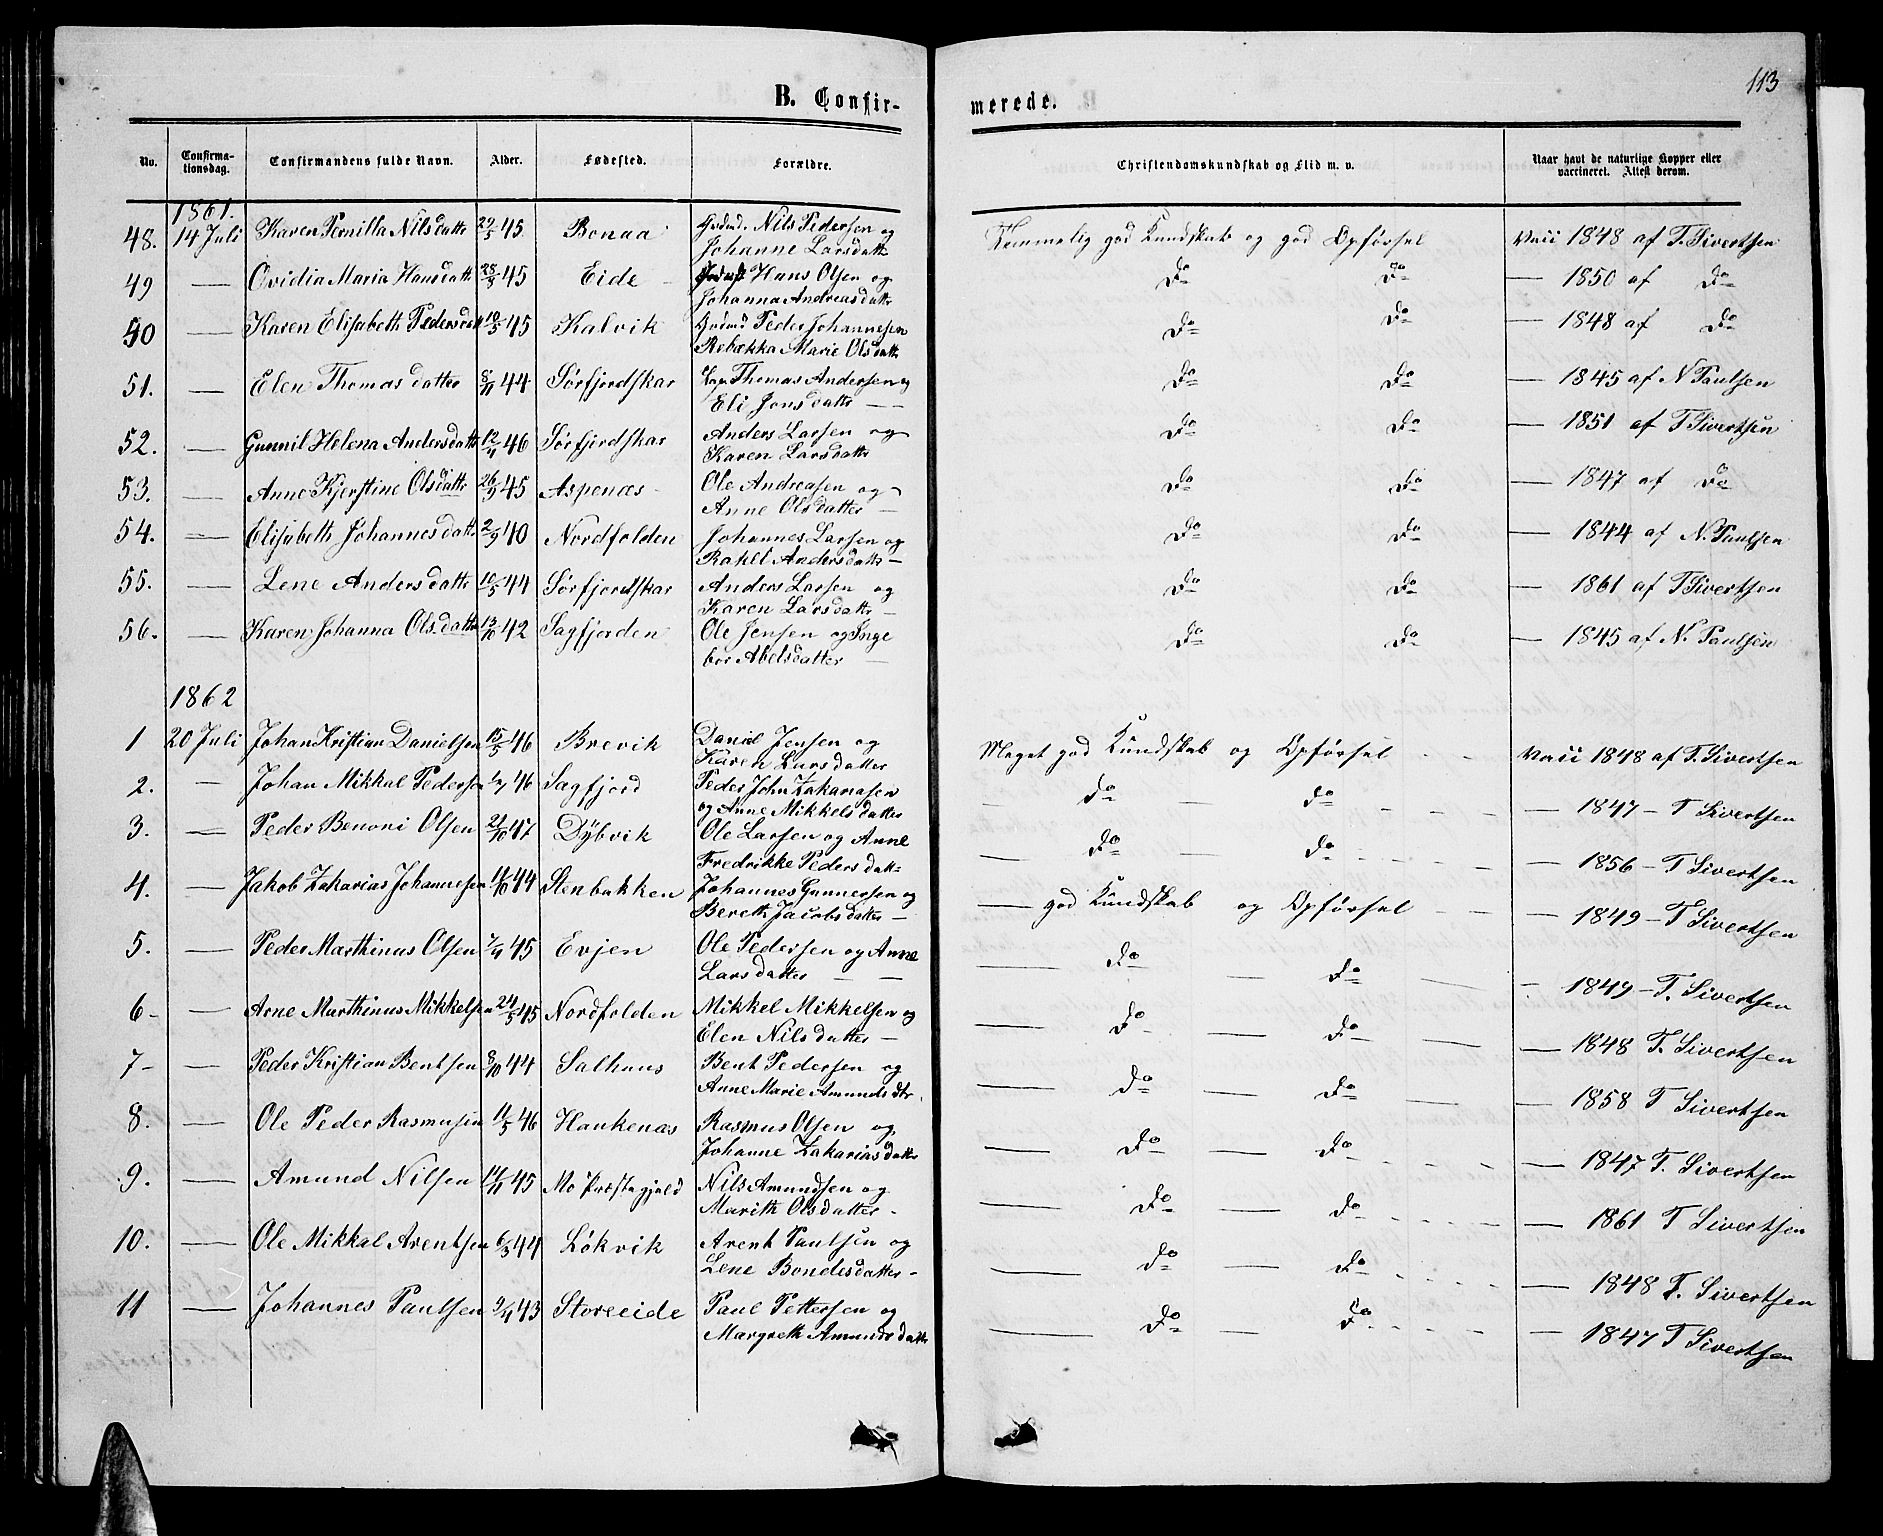 113
B. Confir-
merede.
No. Confirma-tionsdag. Confirmandens fulde Navn. Alder. Fødested. Forældre. Christendomskundskab og Flid m. v. Naar havt de naturlige Kopper eller vaccineret. Attest derom.
1861.
48. 14 Juli Karen Pernilla Nilsdattr 29/5 45 Bonaa Nils Pedersen og Johanne Larsdattr Temmelig god Kundskab og god Opførsel Vacc 1848 af T. Sivertsen
49 — Ovidia Maria Hansdattr 28/3 45 Eide Hans Olsen og Johanna Andreasdattr Do Do — 1850 af Do
50 — Karen Elisabeth Pedersdatt 10/5 45 Kalvik Peder Johannesen Rebækka Marie Olsdattr Do Do — 1848 af Do
51. — Elen Thomasdatter 8/11 44 Sørfjordskar Thomas Andersen og Eli Jonsdattr — Do Do — 1845 af N Paulsen
52. — Gunnil Helena Andersdattr 12/11 46 Sørfjordskar Anders Larsen og Karen Larsdattr Do Do — 1851 af T Sivertsen
53. — Anne Kjerstine Olsdattr 26/9 45 Aspenæs Ole Andreasen og Anne Olsdatter — Do Do — 1847 af Do
54. — Elisabeth Johannesdattr 2/9 40 Nordfolden Johannes Larsen og Rakel Andersdattr — Do Do — 1844 af N. Paulsen
55. — Lene Andersdattr 10/5 44 Sørfjordskar Anders Larsen og Karen Larsdattr — Do Do — 1861 af T Sivertsen
56. — Karen Johanna Olsdattr 13/10 42 Sagfjorden Ole Jensen og Inge bor Abelsdatter — Do Do — 1845 af N. Paulsen
1862
1 20 Juli Johan Kristian Danielsen 15/5 46 Brevik Daniel Jensen og Karen Larsdatter Meget god Kundskab og Opførsel - - Vacc 1848 af T. Sivertsen
2. — Johan Mikkal Pedersen 46 Sagfjord Peder John Zakariasen og Anne Mikkelsdatter — Do — Do — 1847 — T Sivertsen
3. — Peder Benoni Olsen 21/10 47 Dybvik Ole Larsen og Anne Fredrikke Pedersdatt — Do — Do — 1856 — T Sivertsen
4. — Jakob Zakarias Johannesen 11/10 44 Stenbakken Johannes Gunnersen og Bereth Jacobsdatter — — god Kundskab og Opførsel — 1849 — T Sivertsen
5. — Peder Marthinus Olsen 7/11 45 Evjen Ole Pedersen og Anne Larsdatter — — Do — Do — 1849 — T. Sivertsen
6 — Arne Marthinus Mikkelsen 24/5 45 Nordfolden Mikkel Mikkelsen og Elen Nilsdatter — — Do — Do — 1848 T. Sivertsen
7 — Peder Kristian Bentsen 8/10 44 Salhuus Bent Pedersen og Anne Marie Amundsdtr. — Do — Do — 1858 T Sivertsen
8. — Ole Peder Rasmusen 11/5 46 Haukenæs Rasmus Olsen og Johanne Zakariasdatter — Do — Do — 1847 T. Sivertsen
9. — Amund Nilsen 14/11 45 Mo Præstegjeld Nils Amundsen og Marith Olsdatter — — Do — Do — 1861 T Sivertsen
10. — Ole Mikkal Arentsen 6/3 44 Løkvik Arent Paulsen og Lene Bondesdatter — — Do — Do — 1848 T. Sivertsen
11 — Johannes Paulsen 9/11 43 Storeeide Paul Pettersen og Margreth Amundsdattr — Do — Do — 1847 T Sivertsen